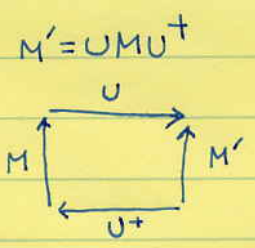 M′=UMU⁺
U
M M′
U⁺